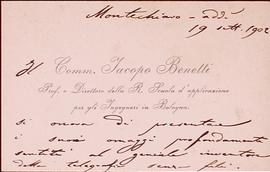 Montechiaro - addì
19 7tt. 1902
Il Comm. Jacopo Benetti
Prof. e Direttore della R. Scuola d'applicazione
per gli Ingegneri in Bologna.
si onora di presentare
i suoi omaggi profondamente
sentiti al geniale inventore
della telegrafia senza fili.